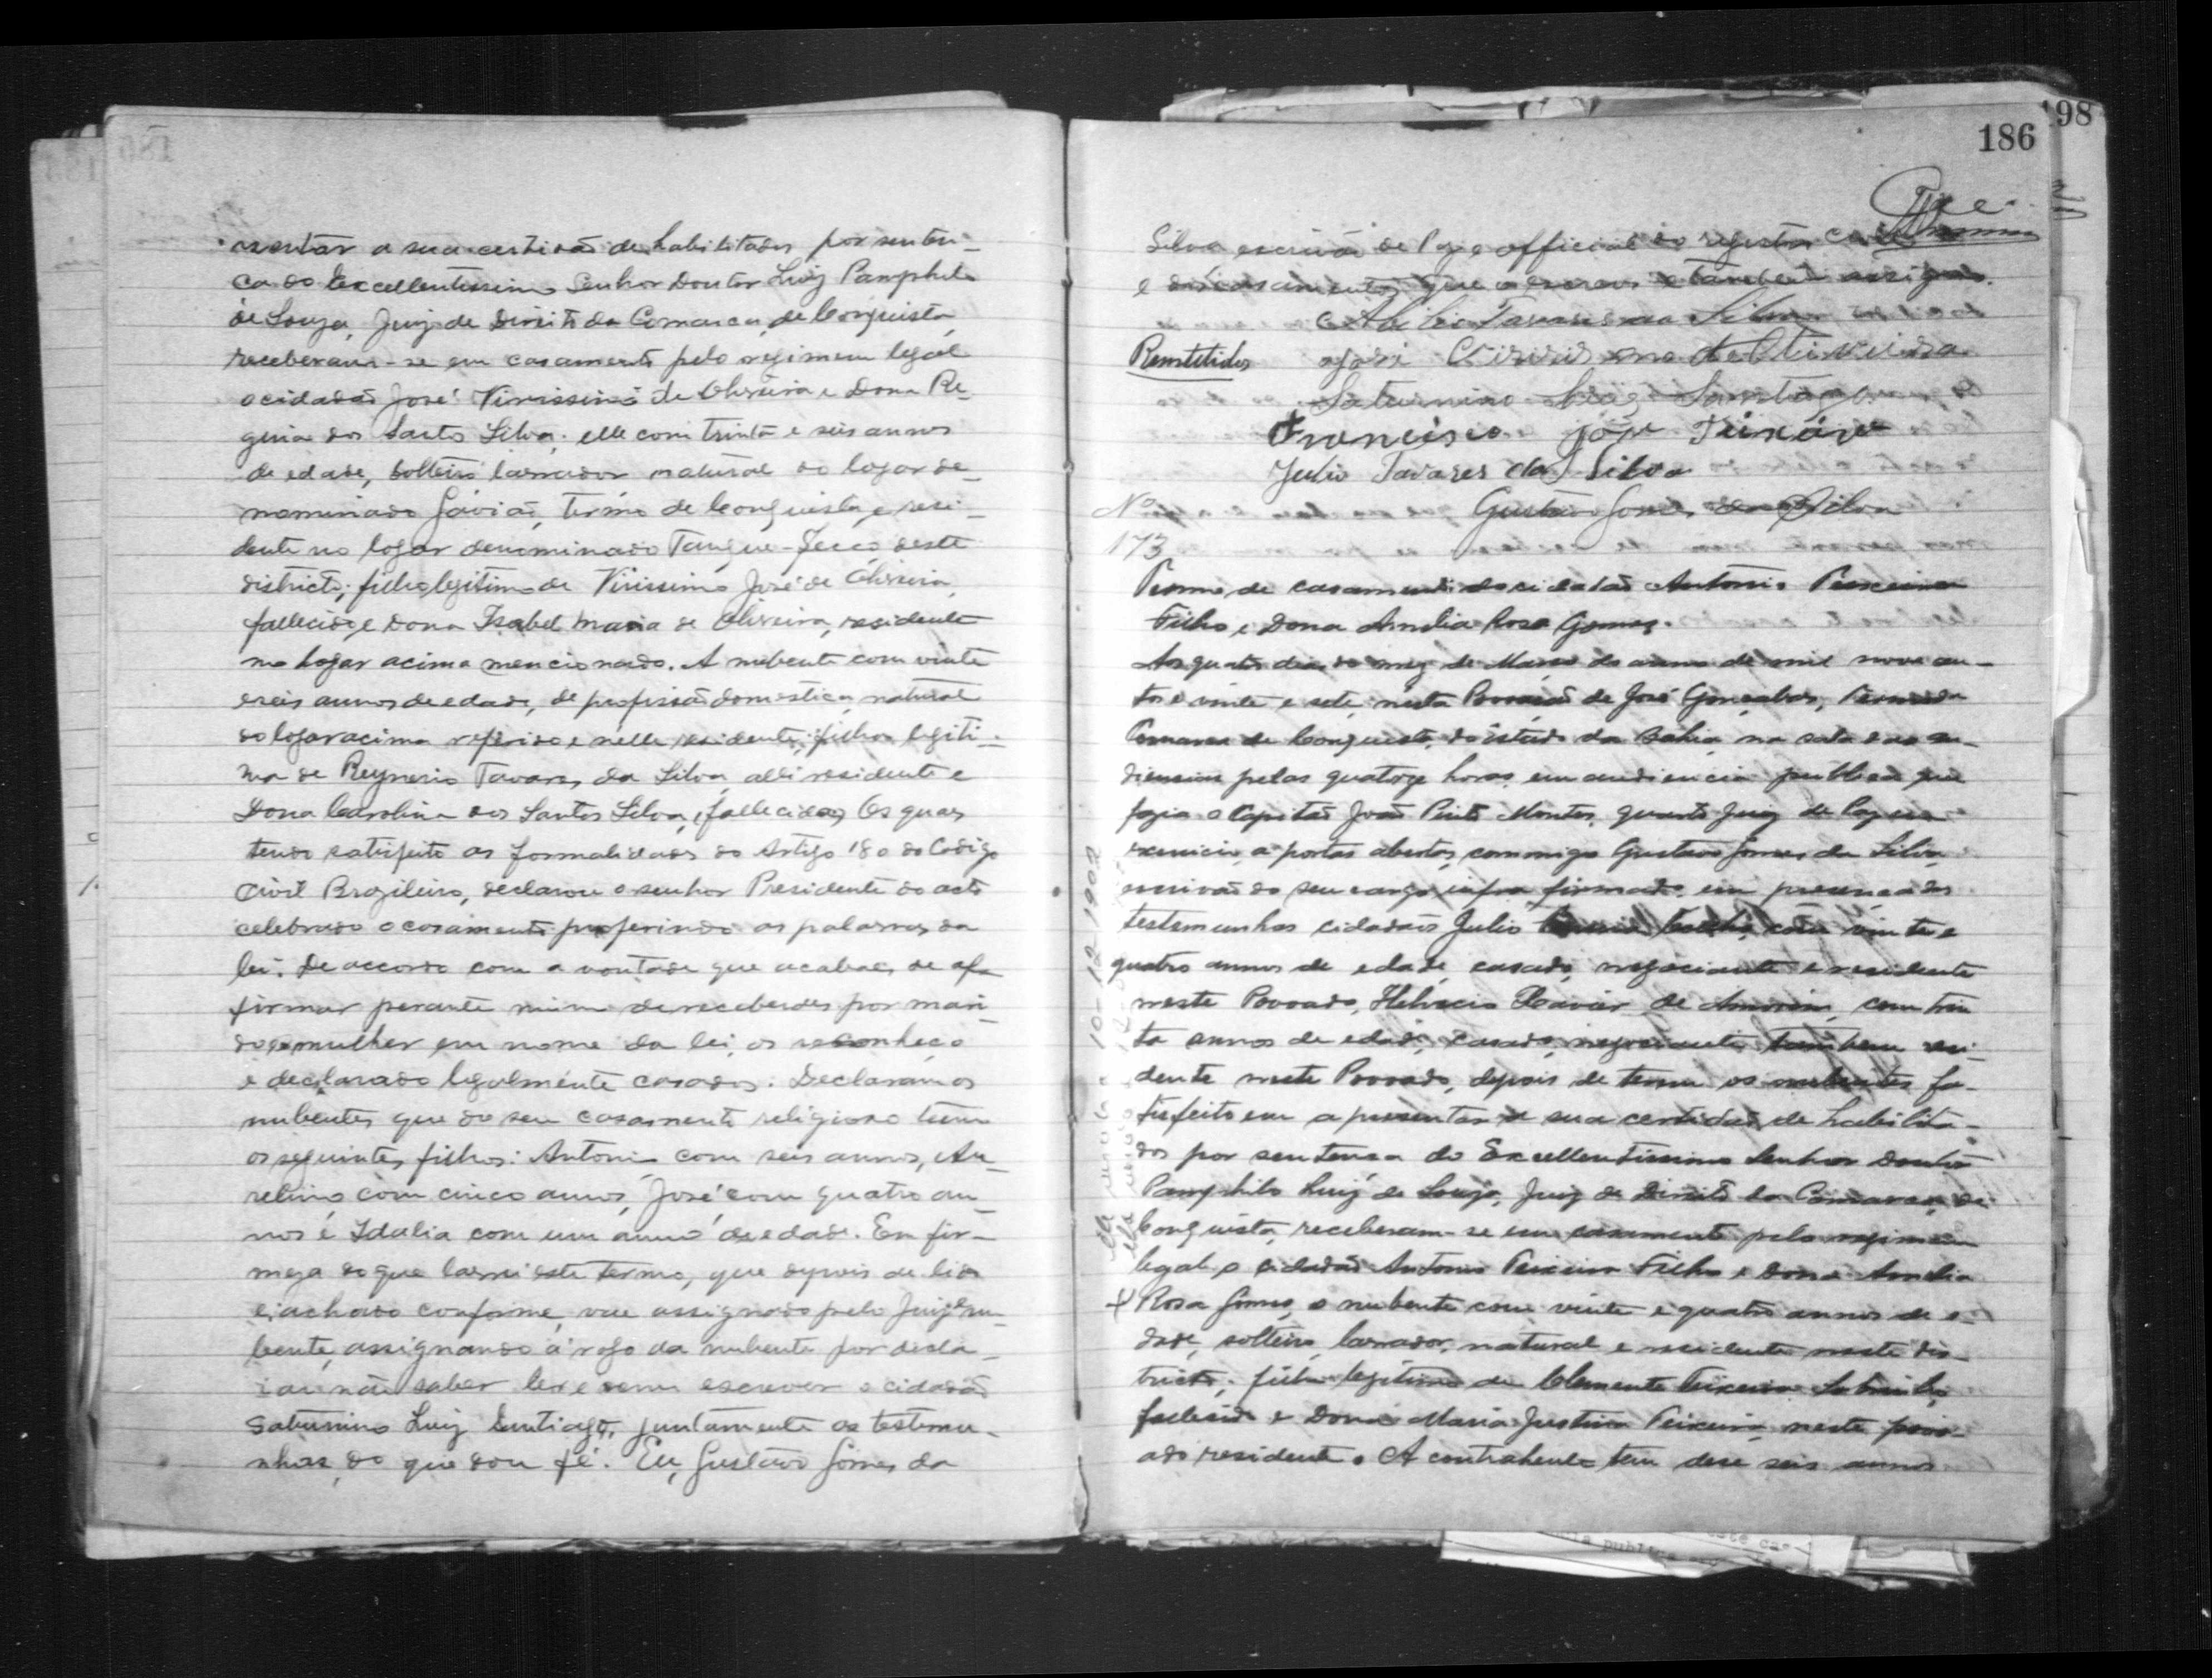 sentar a sua certidão de habilitados por senten-
ça do Excellentissimo Senhor Doutor Luiz Pamphilo
de Souza, Juiz de Direito da Comarca de Conquista,
receberam-se em casamento pelo regimem legal
o cidadão José Virissimo de Oliveira e Dona Re-
gina dos Santos Silva; elle com trinta e seis annos
de edade, solteiro lavrador natural do logar de-
nominado Gavião, termo de Conquista, e resi-
dente no logar denominado Tanque-Secco deste
districto; filho legitimo de Virissimo José de Oliveira,
fallecido, e Dona Isabel Maria de Oliveira, residente
no logar acima mencionado. A nubente com vinte
e seis annos de edade, de profissão domestica, natural
do logar acima referido e nelle residente; filha legiti-
ma de Reynerio Tavares da Silva, alli residente e
Dona Carolina dos Santos Silva, fallecida; Os quaes
tendo satisfeito as formalidades do Artigo 180 do Codigo
Civil Brazileiro, declarou o senhor Presidente do acto
celebrado o casamento proferindo as palavras da
lei: De accordo com a vontade que acabaes de af-
firmar perante mim de receberdes por mari-
do e mulher em nome da lei, os reconheço
e declarado legalmente casados. Declaram os
nubentes que do seu casamento religioso teem
os seguintes filhos: Antonio com seis annos, Au-
relino com cinco annos, José com quatro an-
nos e Idalia com um anno de edade. Em fir-
meza do que lavrei este termo, que depois de lido
e achado conforme, vae assignado pelo Juiz, nu-
bente, assignando a rogo da nubente por decla-
rar não saber ler e nem escrever o cidadão
Saturnino Luiz Santiago, juntamente as testemu-
nhas, do que dou fé. Eu, Gustavo Gomes da
198
186
Silva escrivão de Paz e official do registro
e dos casamentos que o escrevi e tambem assigno.
Tavares da Silva
Remettido José Virissimo de Oliveira
Saturnino Luiz Santiago
Francisco José
Julio Tavares da Silva
Nº Gustavo Gomes da Silva
173
Termo de casamento do cidadão Antonio Teixeira
Filho e Dona Amelia Rosa Gomes.
Aos quatro dias do mez de Março do anno de mil nove cen-
tos e vinte e sete, nesta Povoação de José Gonçalves, Termo da
Comarca de Conquista, do Estado da Bahia, na sala das au-
diencias pelas quatorze horas, em audiencia publica que
fazia o Capitão João Pinto Montes, quarto Juiz de Paz em
exercicio, a portas abertas, commigo Gustavo Gomes da Silva,
escrivão do seu cargo infra firmado, em presença das
testemunhas cidadãos Julio com vinte e
quatro annos de edade, casado, negociante e residente
neste Povoado, Helvecio Xavier de Amorim, com trin
ta annos de edade, casado, negociante, tambem resi-
dente neste Povoado, depois de terem os nubentes sa-
tisfeito em apresentar a sua certidão de habilita-
dos por sentença do Excellentissimo Senhor Doutor
Pamphilo Luiz de Souza, Juiz de Direito da Comarca de
Conquista, receberam-se em casamento pelo regimem
legal o cidadão Antonio Teixeira Filho e Dona Amelia
Rosa Gomes, o nubente com vinte e quatro annos de e-
dade, solteiro, lavrador, natural e residente neste dis-
tricto; filho legitimo de Clemente Teixeira
fallecido e Dona Maria Justina Teixeira, neste povo-
ado residente. A contrahente tem dese seis annos
10-12-1902